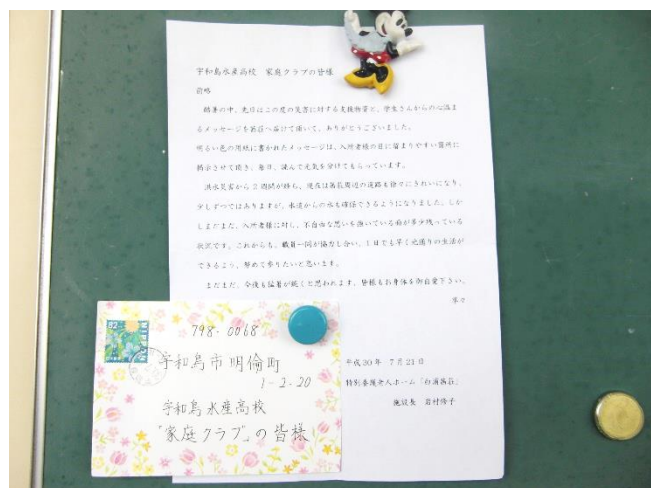 宇和島水産高校 家庭クラブの皆様
前略
酷暑の中、先日はこの度の災害に対する支援物資と、学生さんからの心温ま
るメッセージを当荘へ届けて頂いて、ありがとうございました。
明るい色の用紙に書かれたメッセージは、入所者様の目に留まりやすい箇所に
掲示させて頂き、毎日、読んで元気を分けてもらっています。
洪水災害から2週間が経ち、現在は当荘周辺の道路も徐々にきれいになり、
少しずつではありますが、水道からの水も確保できるようになりました。しか
しまだまだ、入所者様に対し、不自由な思いを強いている面が多少残っている
状況です。これからも、職員一同が協力し合い、1日でも早く元通りの生活が
できるよう、努めて参りたいと思います。
まだまだ、今後も猛暑が続くと思われます。皆様もお身体を御自愛下さい。
草々
平成30年 7月21日
特別養護老人ホーム
施設長
82
798-0068
宇和島市明倫町
1-2-20
宇和島水産高校
「家庭クラブ」の皆様